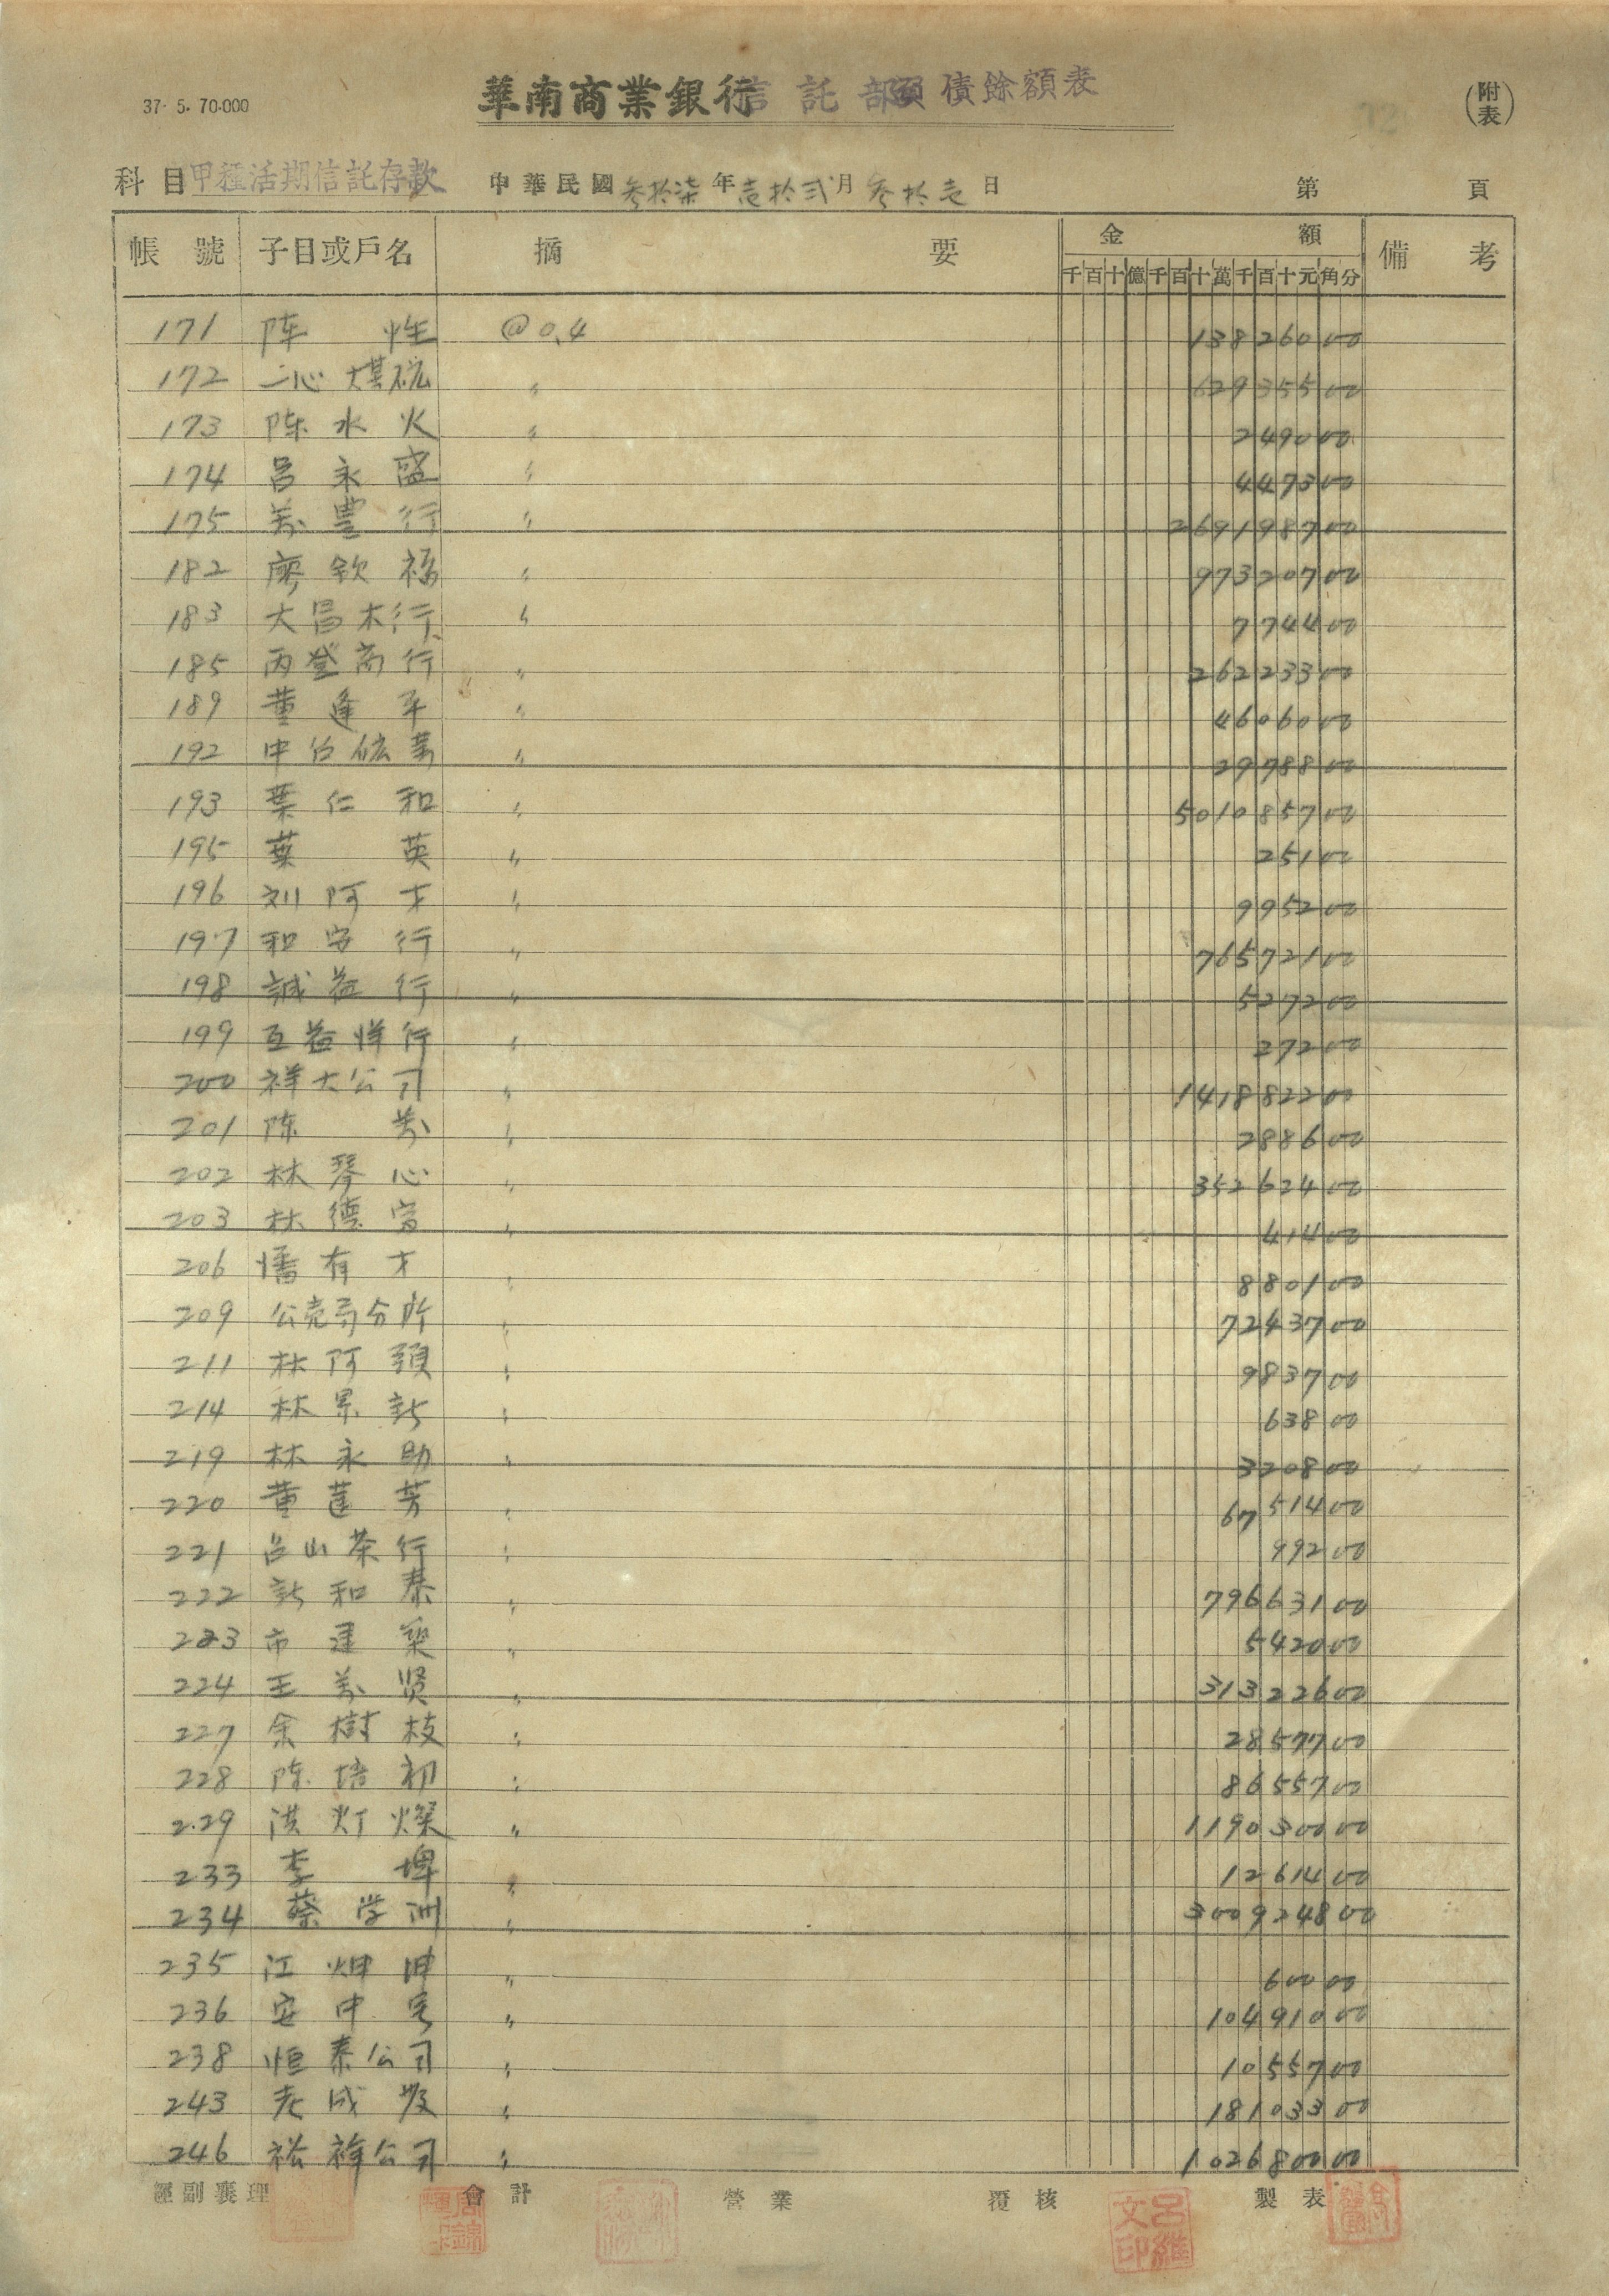 37. 5. 70.000
華南商業銀行信託部負債餘額表
(附表)
科目 甲種活期信託存款 中華民國叁拾柒年壹拾弍月叁拾壱日 第 頁
帳號 子目或戶名 摘要 金額 備考
千百十億千百十萬千百十元角分
171 陈 性 @0.4 138260 00
172 一心煤砿 〃 629355 00
173 陈水火 〃 2490 00
174 呂永盛 〃 4473 00
175 萬豊行 〃 2691987 00
182 廖欽福 〃 973207 00
183 大昌木行 〃 7744 00
185 丙登商行 〃 262233 00
189 董逢平 〃 46060 00
192 中台砿業 〃 29788 00
193 葉仁和 〃 5010857 00
195 葉 英 〃 251 00
196 刘阿才 〃 9952 00
197 和安行 〃 765721 00
198 誠益行 〃 5272 00
199 互益洋行 〃 272 00
200 祥大公司 〃 1418822 00
201 陈 萬 〃 2886 00
202 林琴心 〃 352624 00
203 林德富 〃 414 00
206 潘有才 〃 8801 00
209 公売局分所 〃 72437 00
211 林阿頭 〃 9837 00
214 林景新 〃 638 00
219 林永助 〃 3208 00
220 董莲芳 〃 67514 00
221 呂山茶行 〃 992 00
222 新和泰 〃 796631 00
223 市建築 〃 5420 00
224 王萬賢 〃 313226 00
227 余樹枝 〃 28577 00
228 陈培初 〃 86557 00
229 洪灯燦 〃 1190300 00
233 李 埤 〃 12614 00
234 蔡学洲 〃 3009248 00
235 江坤 〃 600 00
236 安中宅 〃 104910 00
238 恒泰公司 〃 10557 00
243 老成發 〃 181033 00
246 裕祥公司 〃 1026800 00
經副襄理 會計 營業 覆核 製表
呂維文印